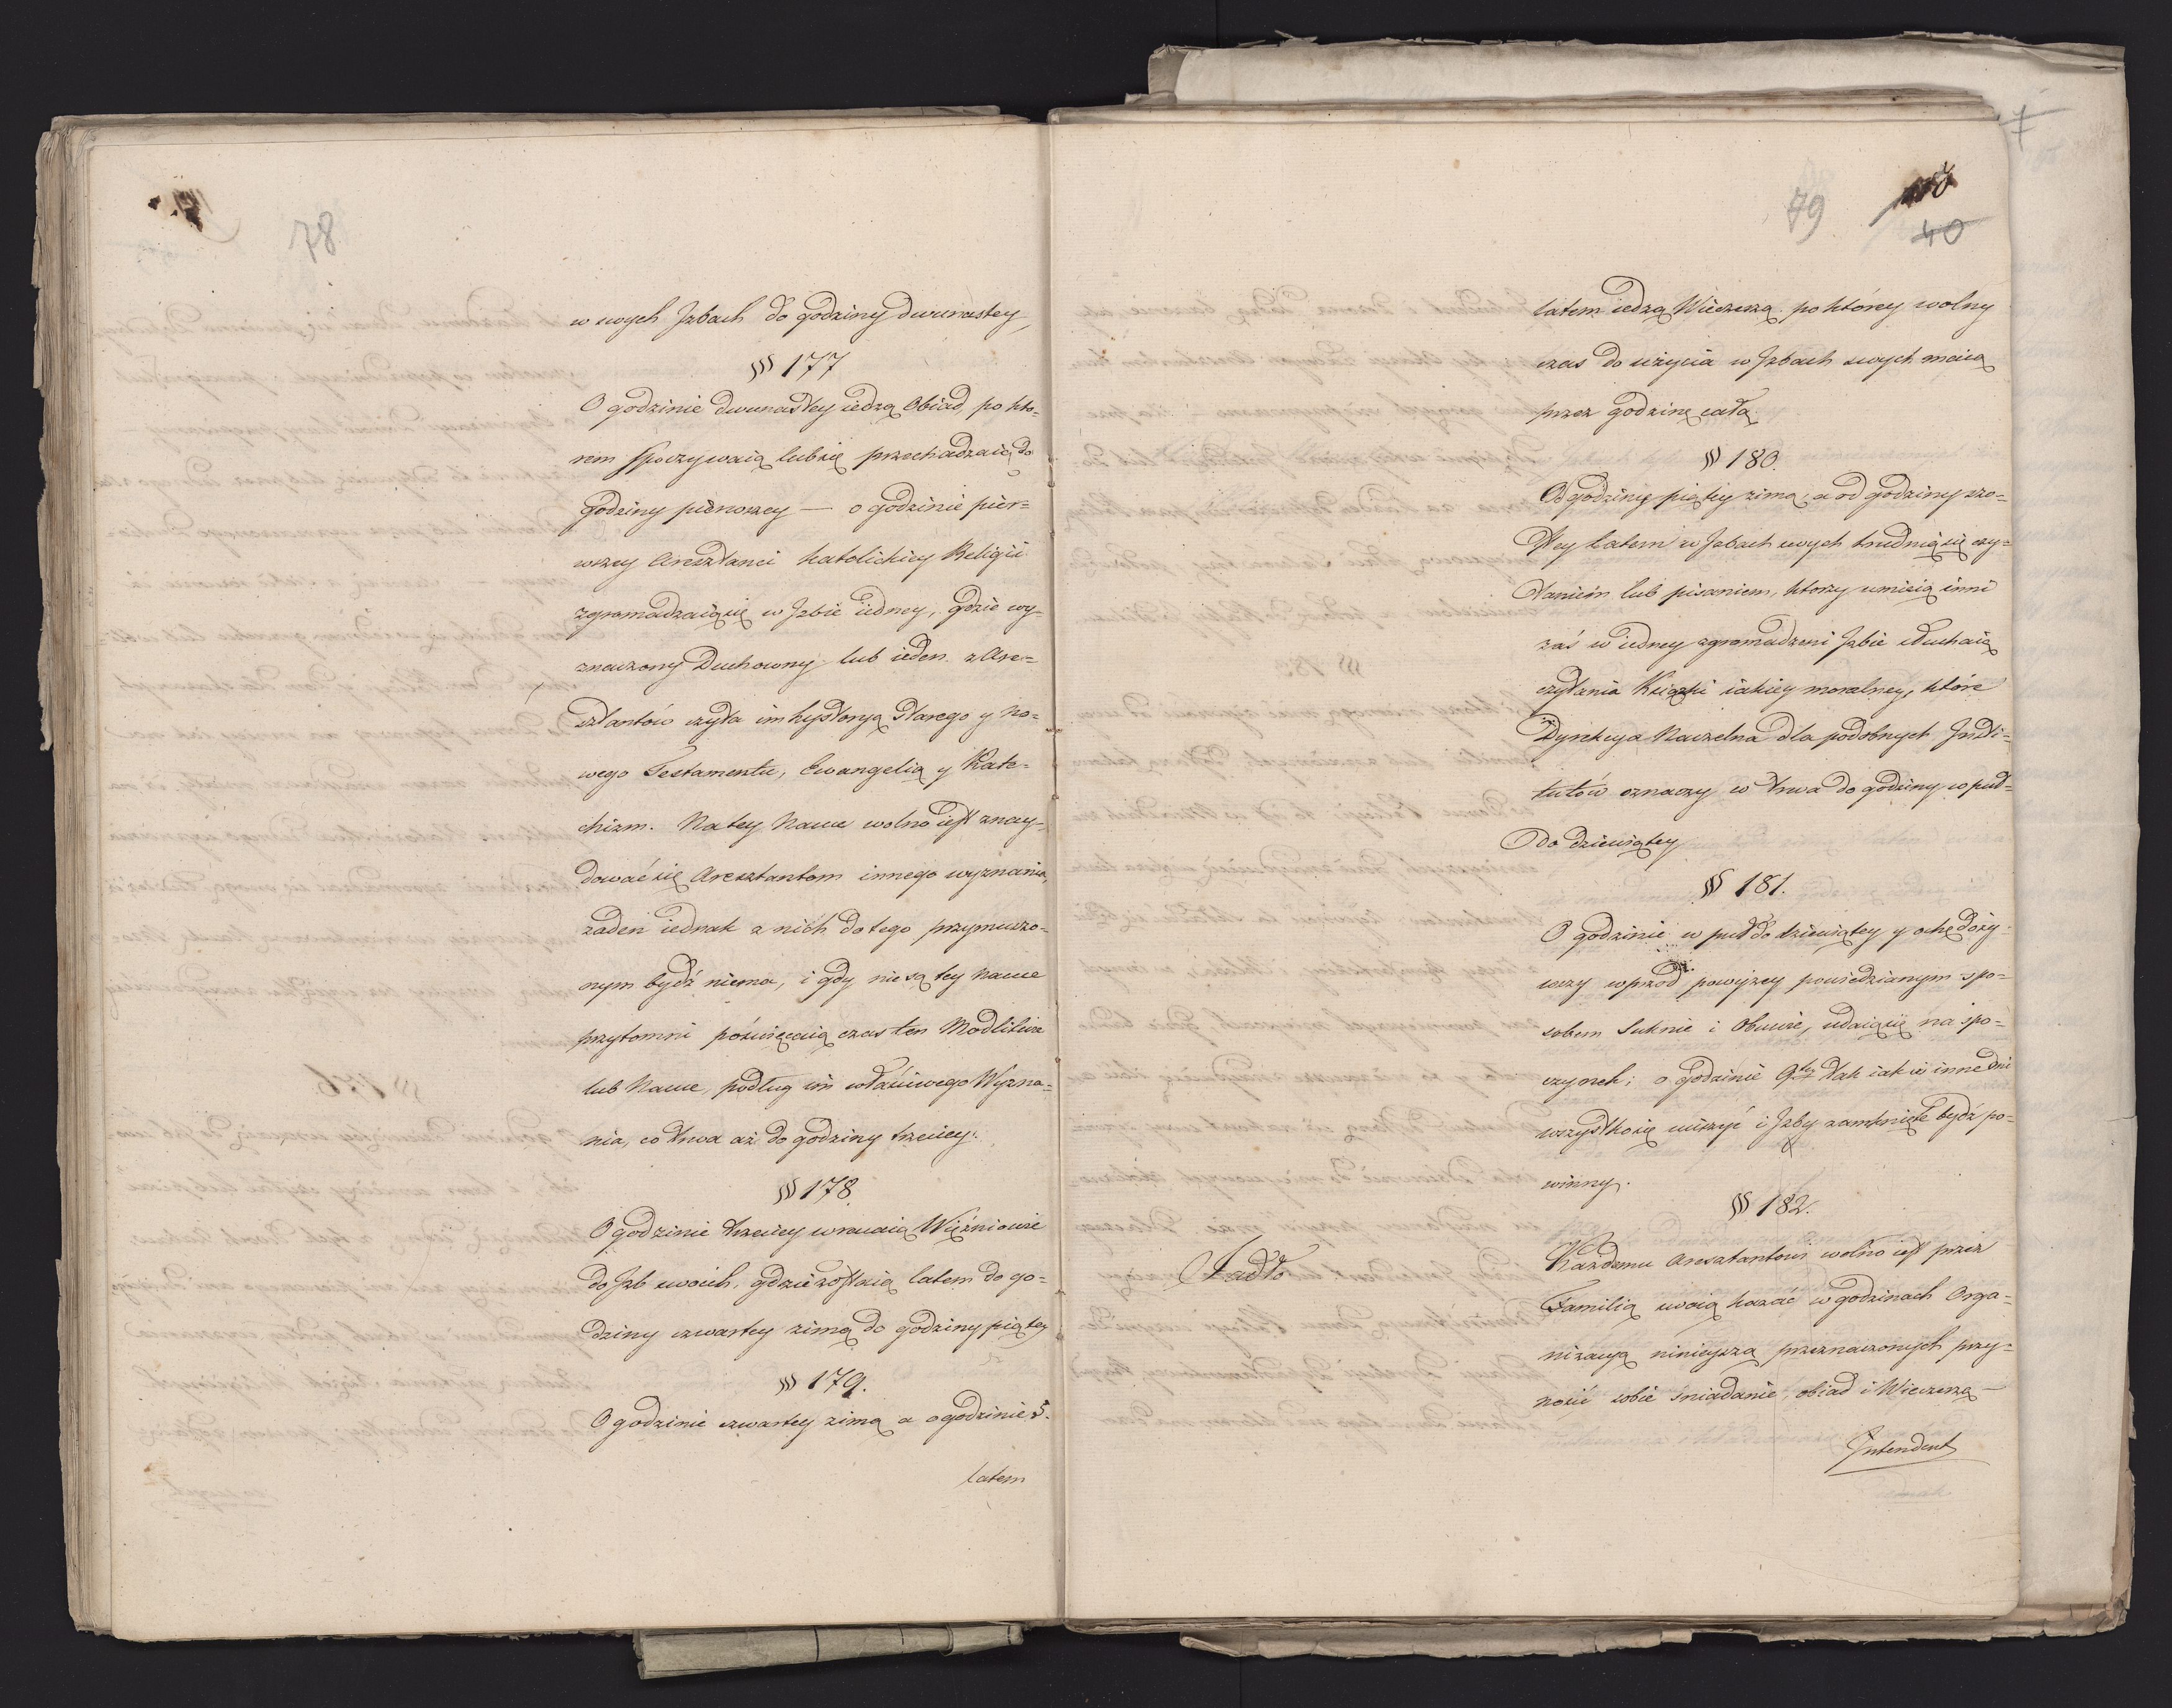 78
w swych Jzbach do godziny dwunastey,
§§ 177
O godzinie dwunastey iedzą Obiad, po któ-
rem spoczywaią lub się przechadzaią do
godziny pierwszey — o godzinie pier-
wszey Aresztanci Katolickiey Religii
zgromadzaią się w Jzbie iedney, gdzie wy-
znaczony Duchowny lub ieden z Are-
sztantów czyta im hystoryą Starego y No-
wego Testamentu, Ewangelią y Kate-
chizm. Na tey Nauce wolno iest znay-
dować się Aresztantom innego wyznania,
żaden iednak z nich do tego przymuszo-
nym bydź niema, i gdy nie są tey Nauce
przytomni poświęcaią czas ten Modlitwie
lub Nauce, podług ich właściwego Wyzna-
nia, co trwa aż do godziny trzeciey.
§§ 178
O godzinie trzeciey wracaią Więźniowie
do Jzb swoich, gdzie zostaią latem do go-
dziny czwartey zimą do godziny piątey
§§ 179.
O godzinie czwartey zimą a o godzinie 5.
latem
79
40
latem iedzą Wieczerzą po którey wolny
czas do użycia w Jzbach swych maią
przez godzinę całą.
§§ 180.
Od godziny piątey zimą, a od godziny szo-
stey latem w Jzbach swych trudnią się czy-
taniem lub pisaniem, którzy umieią inni
zaś w iedney zgromadzeni Jzbie słuchaią
czytania Książki iakiey moralney, które
Dyrekcya Naczelna dla podobnych Jnsti-
tutów oznaczy co trwa do godziny w puł-
do dziewiątey
§§ 181.
O godzinie w puł do dziewiątey y ochędoży-
wszy wprzod powyżey powiedzianym spo-
sobem Suknie i Obuwie, udaią się na spo-
czynek; o godzinie 9tey tak iak w inne dni
wszystko się uiszyć i Jzby zamknięte bydź po-
winny.
§§ 182.
Jadło
Każdemu Aresztantowi wolno iest przez
Familią swoią kazać w godzinach Orga-
nizacyą ninieyszą przeznaczonych przy-
nosić sobie śniadanie, obiad i Wieczerzą —
Jntendent